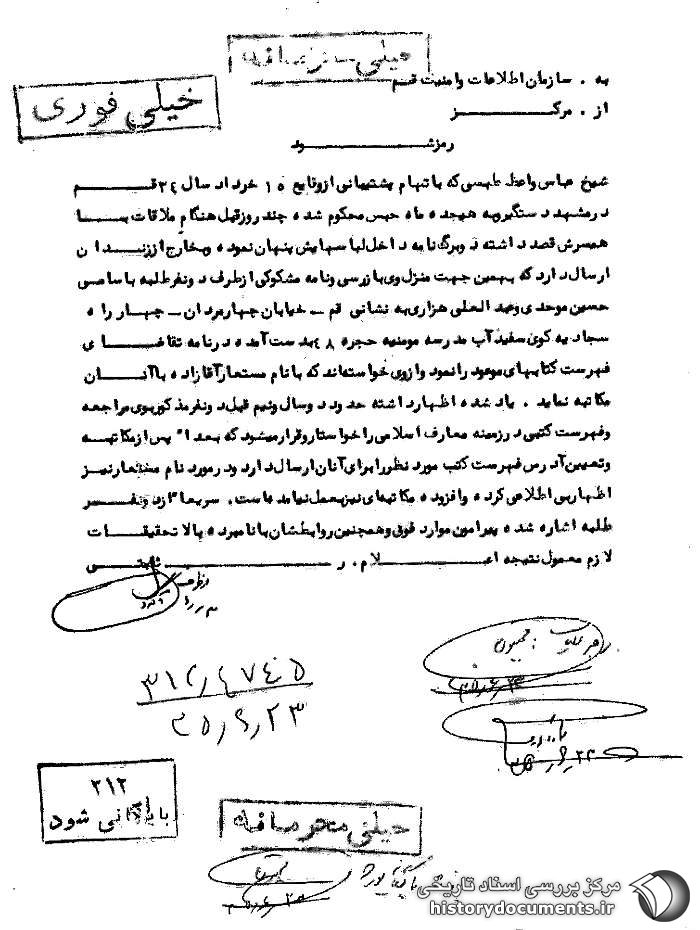 خیلی محرمانه
خیلی فوری
به . سازمان اطلاعات وامنیت قم
از . مرکز
رمز شود
شیخ عباس واعظ طبسی که باتهام پشتیبانی ازوقایع ۱۵ خرداد سال ۳۴ قم
درمشهد دستگیروبه هیجده ماه حبس محکوم شده چند روزقبل هنگام ملاقات بسا
همسرش قصد داشته دوبرگ نامه داخل لباسهایش پنهان نموده وبخارج اززندان
ارسال دارد که بهمین جهت منزل وی بازرسی ونامه مشکوکی ازطرف دونفرطلبه باسامی
حسین موحدی وعبدالعلی هزاری به نشانی قم - خیابان چهارمردان - چهارراه
سجادیه کوی سفیدآب مدرسه مومنیه حجره ۴۸ بدست آمده درنامه تقاضای
فهرست کتابهای موعود رانمود وازوی خواسته‌اند که بانام مستعارآقازاده باآنان
مکاتبه نماید . یاد شده اظهارداشته حدود دوسال ونیم قبل دونفرمذکوربوی مراجعه
وفهرست کتبی درزمینه معارف اسلامی راخواستاروقرارمیشود که بعدا" پس ازمکاتبه
وتعیین آدرس فهرست کتب مورد نظررابرای آنان ارسال دارد ودرمورد نام مستعارنیز
اظهاربی اطلاعی کرده وافزوده مکاتبه‌ای نیزبعمل نیامده است . سریعا" ازدونفر
طلبه اشاره شده پیرامون موارد فوق وهمچنین روابطشان بانامبرده بالا تحقیقات
لازم معمول نتیجه اعلام . ر ثابتی
۳۱۲/۴۷۴۵
۳۵/۶/۲۳
۲۱۲
بایگانی شود
خیلی محرمانه
مرکز بررسی اسناد تاریخی
historydocuments.ir